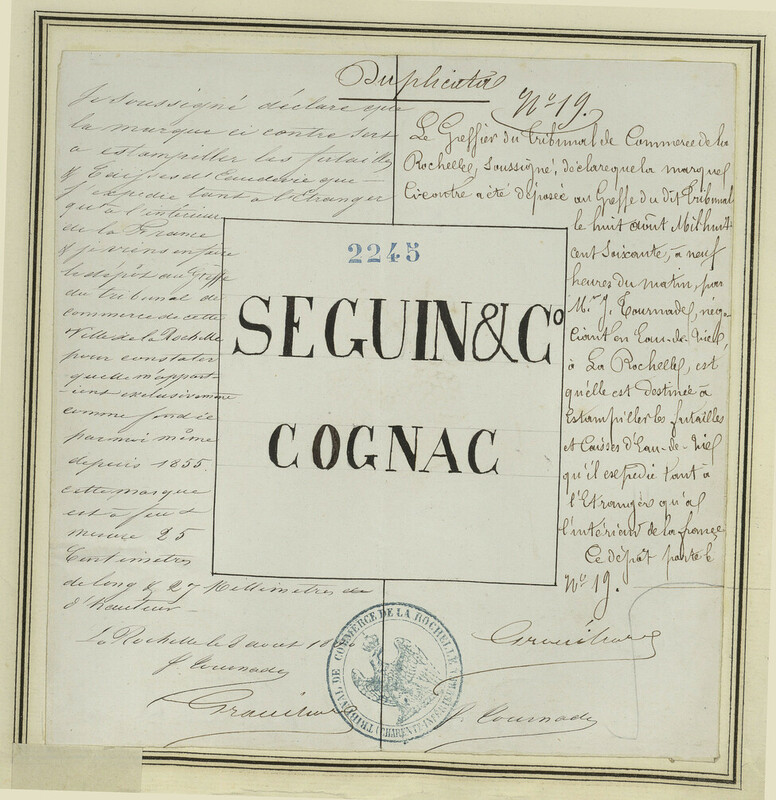 Duplicata
Je soussigné déclare que
la marque ci contre sert
a estampiller les futailles
& Caisses d'Eaudevie que
j'expedie tant a l'Etranger
qu'a l'interieur
de la France
& je viens en faire
le dépôt au greffe
du tribunal de
commerce de cette
Ville de la Rochelle
pour constater
quelle m'appart-
iens exclusivemme
comme fondée
par moi même
depuis 1855.
cette marque
est à feu &
mesure 25
Centimetres
de long & 27 Millimetres de
d'hauteur
La Rochelle le 8 aout
J. Tournade
No 19.
Le Greffier du Tribunal de Commerce de la
Rochelle, soussigné, déclare que la marque
ci contre a été déposée au Greffe du dit Tribunal
le huit août Mil huit
cent soixante, à neuf
heures du matin, par
Mr J. Tournade, négo-
ciant en Eau-de-Vie,
à La Rochelle, est
qu'elle est destinée à
Estampiller les futailles
et Caisses d'Eau-de-Vie
qu'il expedie tant à
l'Etranger qu'a
l'intérieur de la france,
Ce dépôt porte le
No 19.
J. Tournade
2245
SEGUIN & Co
COGNAC
TRIBUNAL DE COMMERCE DE LA ROCHELLE
(CHARENTE-INFÉRIEURE)